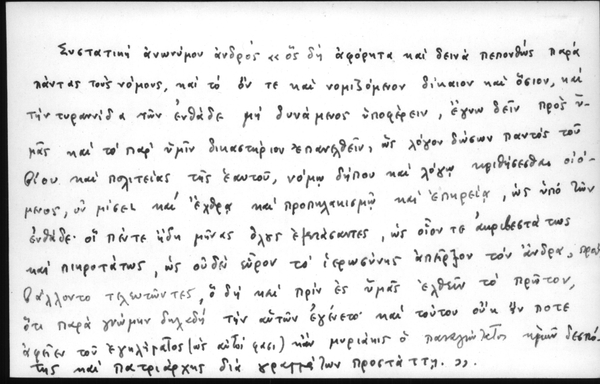 Συστατική ἀνωνύμου ἀνδρός «ὅς δή ἀφόρητα καί δεινά πεπονθώς παρά
πάντας τούς νόμους, καί τό ὄν τε καί νομιζόμενον δίκαιον καί ὅσιον, καί
τήν τυραννίδα τῶν ἐνθάδε μή δυνάμενος ὑποφέρειν, ἔγνω δεῖν πρός ὑ-
μᾶς καί τό παρ' ὑμῖν δικαστήριον ἐπανελθεῖν, ὡς λόγον δώσων παντός τοῦ
βίου καί πολιτείας τῆς ἑαυτοῦ, νόμῳ δήπου καί λόγῳ κριθήσεσθαι οἰό-
μενος, οὐ μίσει καί ἔχθρᾳ καί προπηλακισμῷ καί ἐπηρείᾳ, ὡς ὑπό τῶν
ἐνθάδε· οἵ πέντε ἤδη μῆνας ὅλους ἐξετάσαντες, ὡς οἷόν τε ἀκριβέστατως
καί πικροτάτως, ὡς οὐδέν εὗρον τό ἱερωσύνης ἀπεῖρξον τόν ἄνδρα, προ
βάλλοντο τελευτῶντες, ὅ δή καί πρίν ἐς ὑμᾶς ἐλθεῖν τό πρῶτον,
ὅτι παρά γνώμην δηλαδή τήν αὐτῶν ἐγένετο· καί τούτου οὐκ ἦν ποτε
ἀφεῖναι τοῦ ἐγκλήματος (ὡς αὐτοί φασι) κἄν μυριάκις ὁ παναγιώτατος ἡμῶν δεσπό-
της καί πατριάρχης διά γραμμάτων προστάττῃ.»